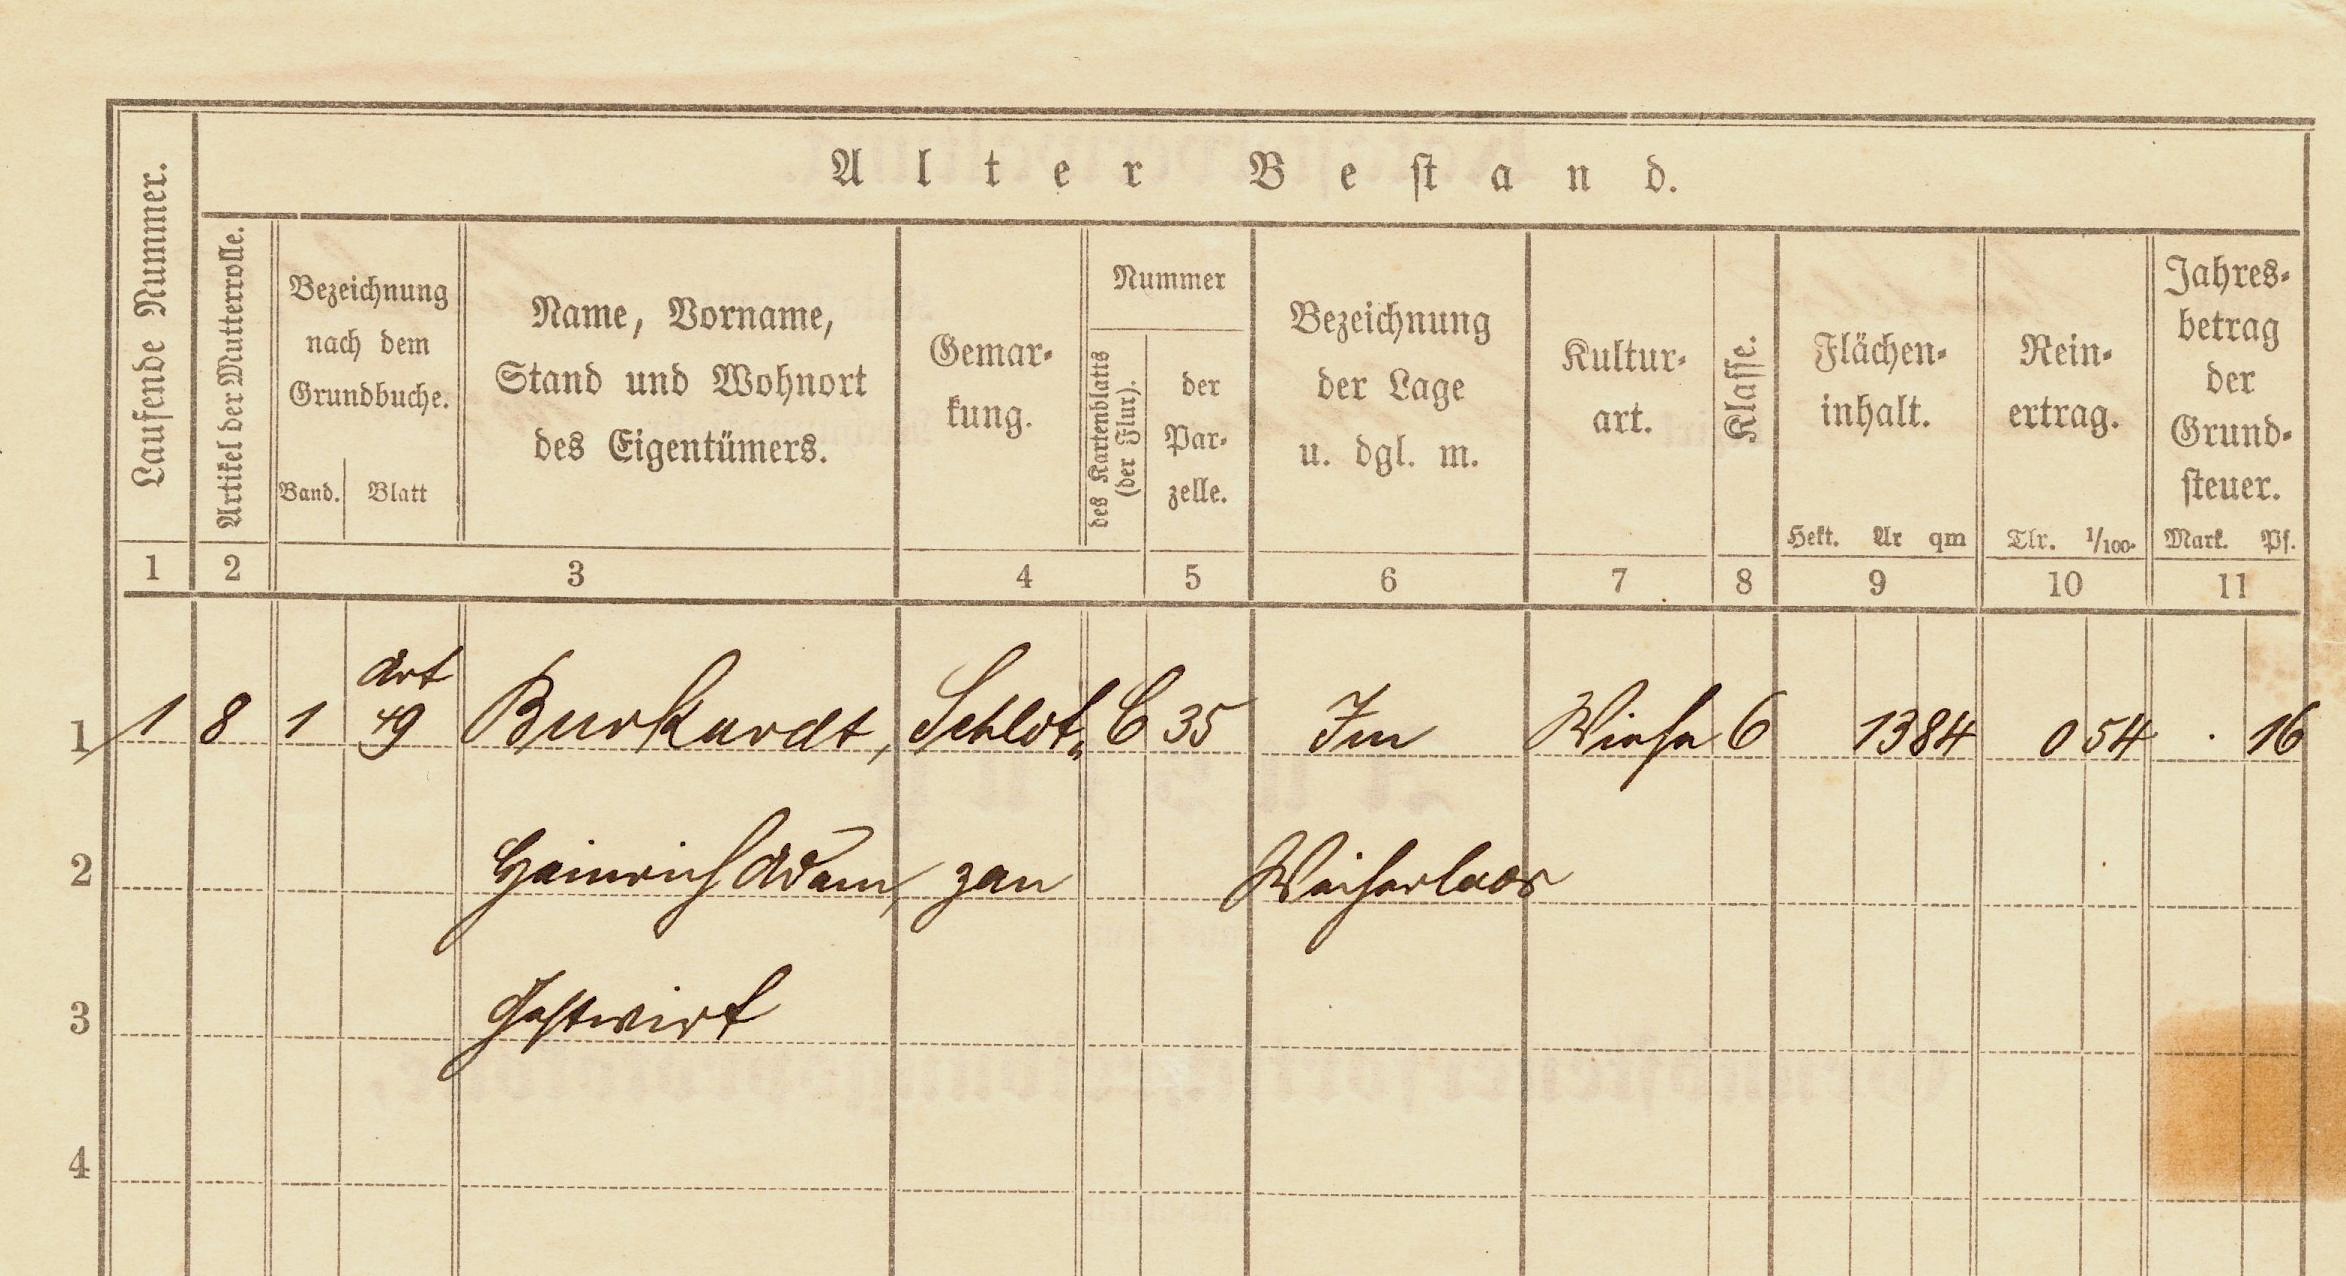 Alter Bestand.
Laufende Nummer.
Artikel der Mutterrolle.
Bezeichnung
nach dem
Grundbuche.
Band. Blatt
Name, Vorname,
Stand und Wohnort
des Eigentümers.
Gemar-
kung.
Nummer
des Kartenblatts
(der Flur).
der
Par-
zelle.
Bezeichnung
der Lage
u. dgl. m.
Kultur-
art.
Klasse.
Flächen-
inhalt.
Hekt. Ar qm
Rein-
ertrag.
Tlr. 1/100.
Jahres-
betrag
der
Grund-
steuer.
Mark. Pf.
1 2 3 4 5 6 7 8 9 10 11
Art
1 1 8 1 49 Burkardt, Schlot„ C 35 Im Wiese 6 1384 0 54 . 16
2 Heinrich Adam, zau Weiherlaos
3 Gastwirt
4